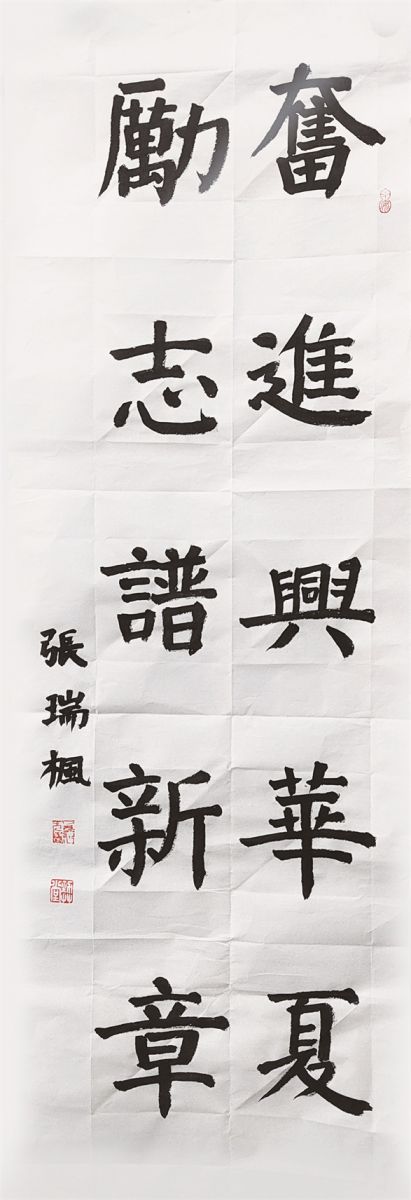 奮進興華夏
勵志譜新章
張瑞楓